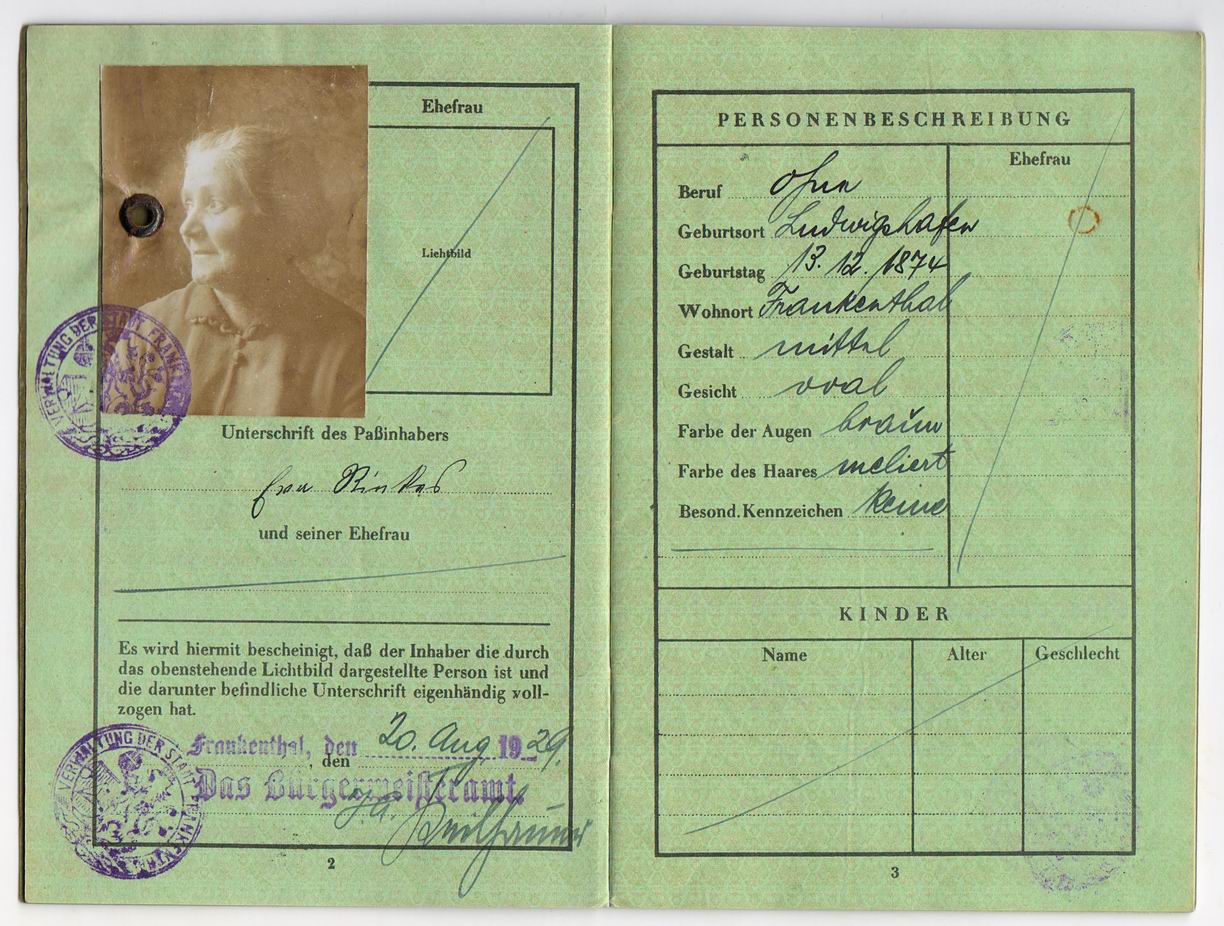 Ehefrau
Lichtbild
VERWALTUNG DER STADT FRANKENTHAL
Unterschrift des Paßinhabers
Eva
und seiner Ehefrau
Es wird hiermit bescheinigt, daß der Inhaber die durch
das obenstehende Lichtbild dargestellte Person ist und
die darunter befindliche Unterschrift eigenhändig voll-
zogen hat.
Frankenthal, den 20. Aug. 1929.
den
Das Bürgermeisteramt.
VERWALTUNG DER STADT FRANKENTHAL
2
PERSONENBESCHREIBUNG
Ehefrau
Beruf ohne
Geburtsort Ludwigshafen
Geburtstag 13. 12. 1874
Wohnort Frankenthal
Gestalt mittel
Gesicht oval
Farbe der Augen braun
Farbe des Haares meliert
Besond. Kennzeichen keine
KINDER
Name Alter Geschlecht
3